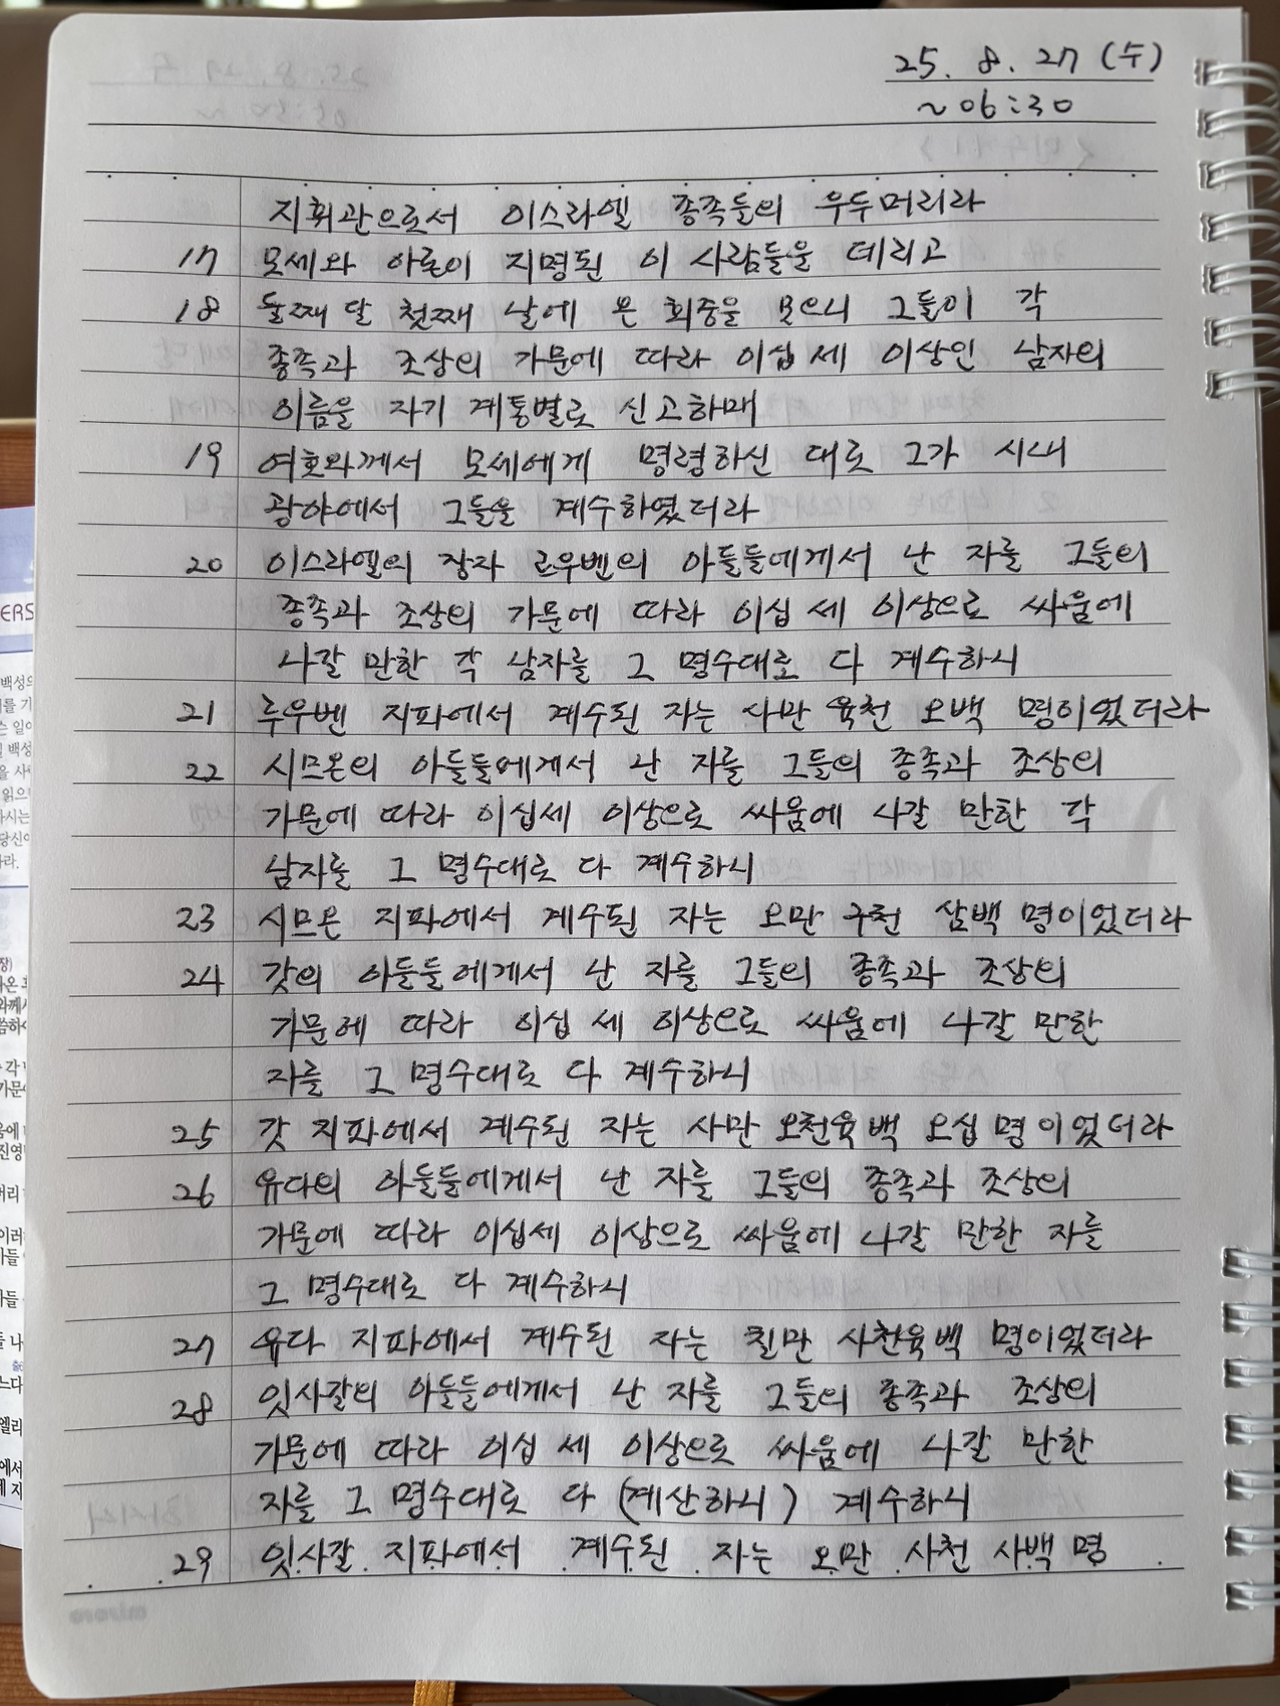 25. 8. 27 (수)
~06:30
지휘관으로서 이스라엘 종족들의 우두머리라
17 모세와 아론이 지명된 이 사람들을 데리고
18 둘째 달 첫째 날에 온 회중을 모으니 그들이 각
종족과 조상의 가문에 따라 이십 세 이상인 남자의
이름을 자기 계통별로 신고하매
19 여호와께서 모세에게 명령하신 대로 그가 시내
광야에서 그들을 계수하였더라
20 이스라엘의 장자 르우벤의 아들들에게서 난 자를 그들의
종족과 조상의 가문에 따라 이십 세 이상으로 싸움에
나갈 만한 각 남자를 그 명수대로 다 계수하니
21 루우벤 지파에서 계수된 자는 사만 육천 오백 명이었더라
22 시므온의 아들들에게서 난 자를 그들의 종족과 조상의
가문에 따라 이십세 이상으로 싸움에 나갈 만한 각
남자를 그 명수대로 다 계수하니
23 시므온 지파에서 계수된 자는 오만 구천 삼백 명이었더라
24 갓의 아들들에게서 난 자를 그들의 종족과 조상의
가문에 따라 이십 세 이상으로 싸움에 나갈 만한
자를 그 명수대로 다 계수하니
25 갓 지파에서 계수된 자는 사만 오천육백 오십 명이었더라
26 유다의 아들들에게서 난 자를 그들의 종족과 조상의
가문에 따라 이십세 이상으로 싸움에 나갈 만한 자를
그 명수대로 다 계수하니
27 유다 지파에서 계수된 자는 칠만 사천육백 명이었더라
28 잇사갈의 아들들에게서 난 자를 그들의 종족과 조상의
가문에 따라 이십 세 이상으로 싸움에 나갈 만한
자를 그 명수대로 다 (계산하니) 계수하니
29 잇사갈 지파에서 계수된 자는 오만 사천 사백 명